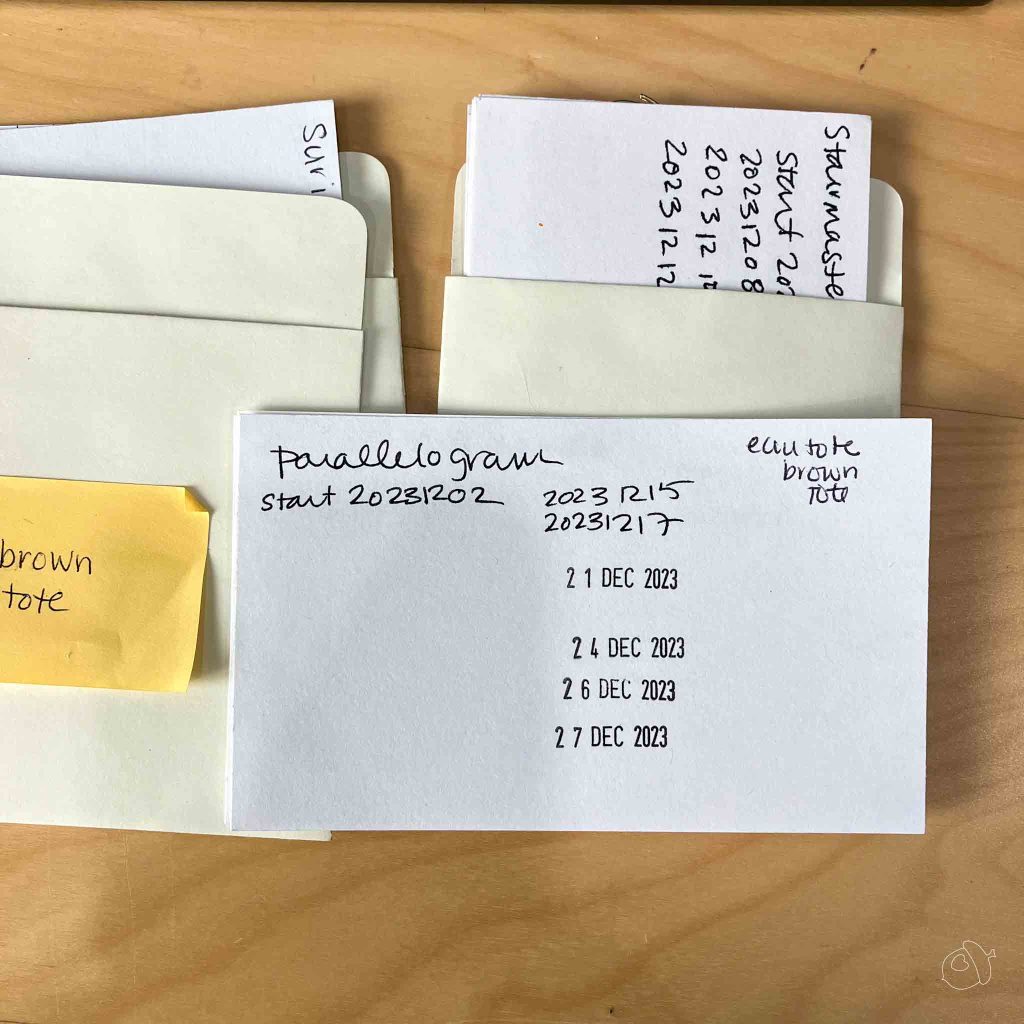 Suri
Stairmaste
Start 20
20231208
20231212
parallelogram
start 20231202
20231215
20231217
21 DEC 2023
24 DEC 2023
26 DEC 2023
27 DEC 2023
eau tote
brown
tote
brown
tote